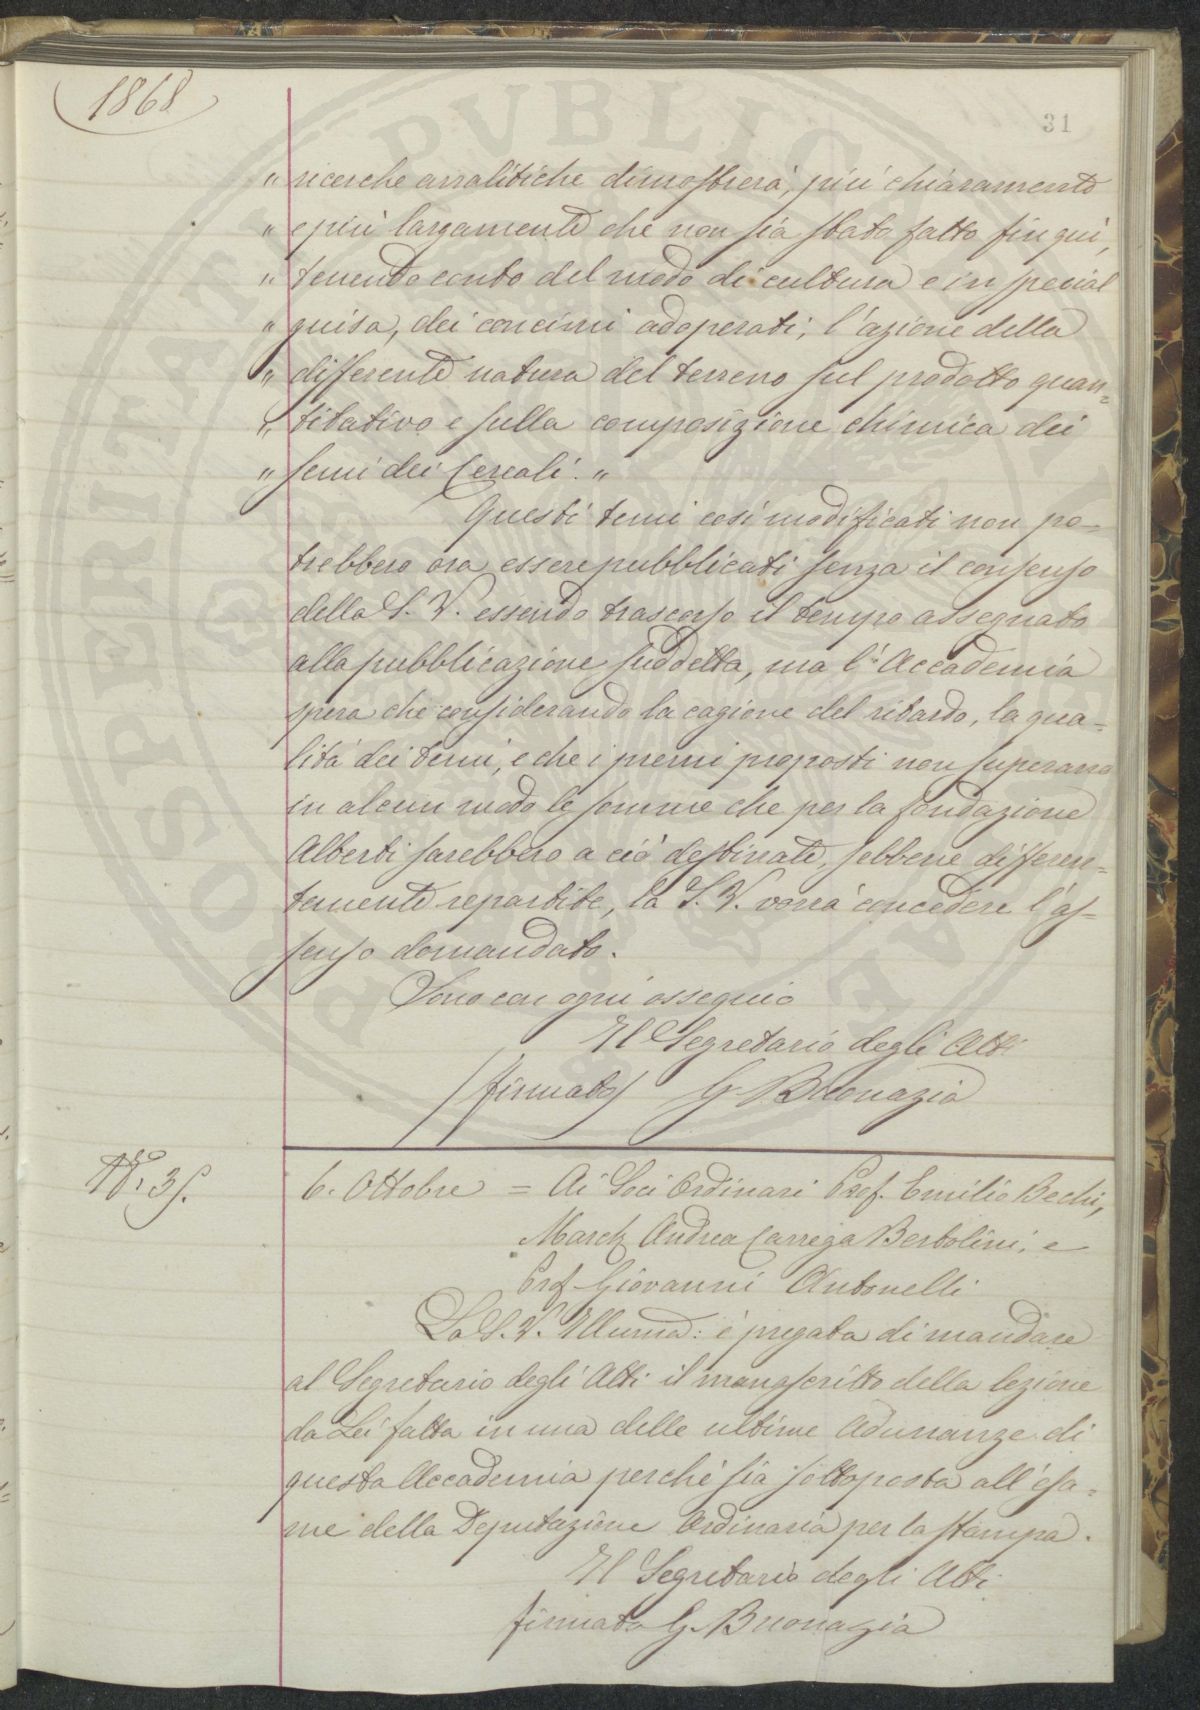 1868
31
" ricerche analitiche dimostrerà, più chiaramente
" e più largamente che non sia stato fatto fin qui,
" tenendo conto del modo di cultura e in special
" guisa, dei concimi adoperati, l'azione della
" differente natura del terreno sul prodotto quan=
" titativo e sulla composizione chimica dei
" semi dei Cereali. "
Questi temi così modificati non po=
trebbero ora essere pubblicati senza il consenso
della S. V. essendo trascorso il tempo assegnato
alla pubblicazione suddetta, ma l'Accademia
spera che considerando la cagione del ritardo, la qua=
lità dei temi, e che i premi proposti non superano
in alcun modo le somme che per la fondazione
Alberti sarebbero a ciò destinate, sebbene differen=
temente repartite, la S. V. vorrà concedere l'as=
senso domandato.
Sono con ogni ossequio
Il Segretario degli Atti
(firmato) G. Buonazia
N.° 35.
6. Ottobre = Ai Soci Ordinari Prof. Emilio Bechi,
March. Andrea Carrega Bertolini, e
Prof. Giovanni Antonelli
La S. V. Illuma: è pregata di mandare
al Segretario degli Atti il manoscritto della lezione
da Lei fatta in una delle ultime Adunanze di
questa Accademia perché sia sottoposta all'esa=
me della Deputazione Ordinaria per la stampa.
Il Segretario degli Atti
firmato G. Buonazia
PROSPERITATI PVBLICAE AVGENDAE